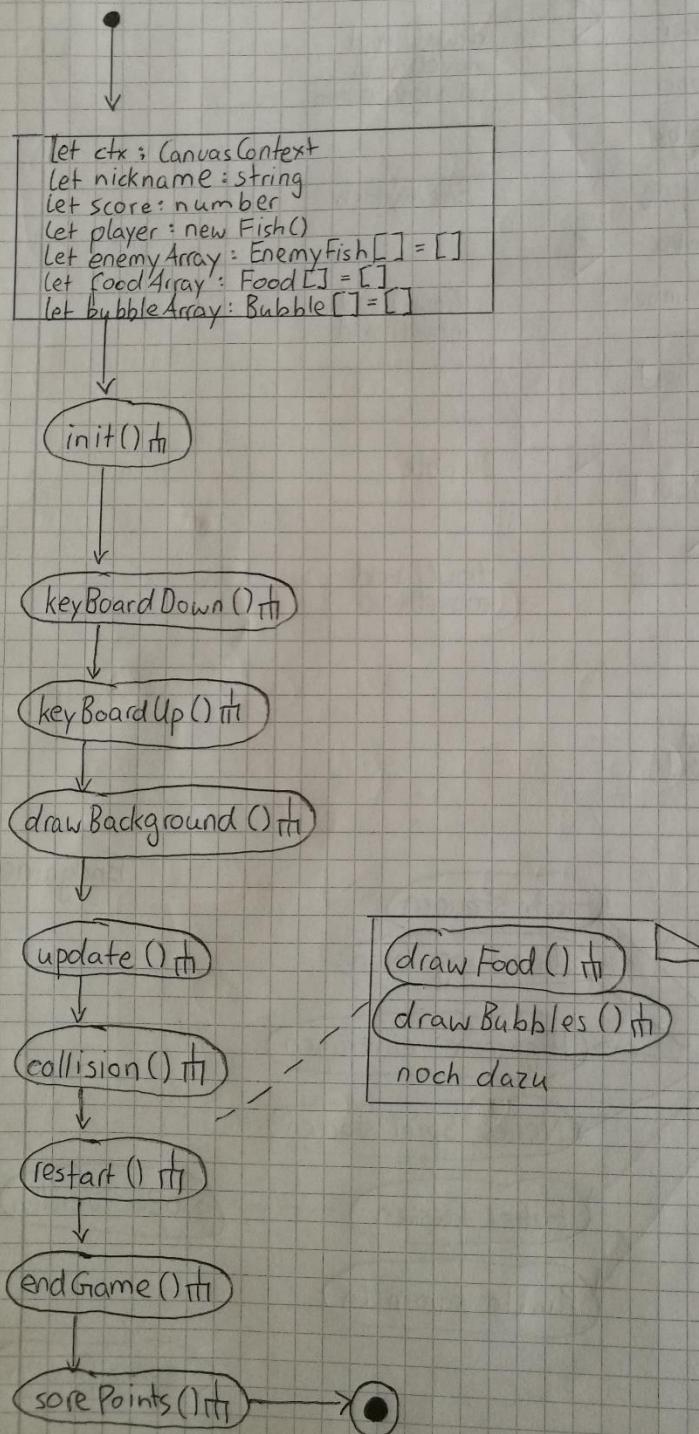 let ctx : CanvasContext
let nickname : string
let score : number
let player : new Fish()
let enemyArray : EnemyFish[] = []
let foodArray : Food[] = []
let bubbleArray : Bubble[] = []
init()
keyBoardDown()
keyBoardUp()
drawBackground()
update()
collision()
restart()
endGame()
sorePoints()
drawFood()
drawBubbles()
noch dazu